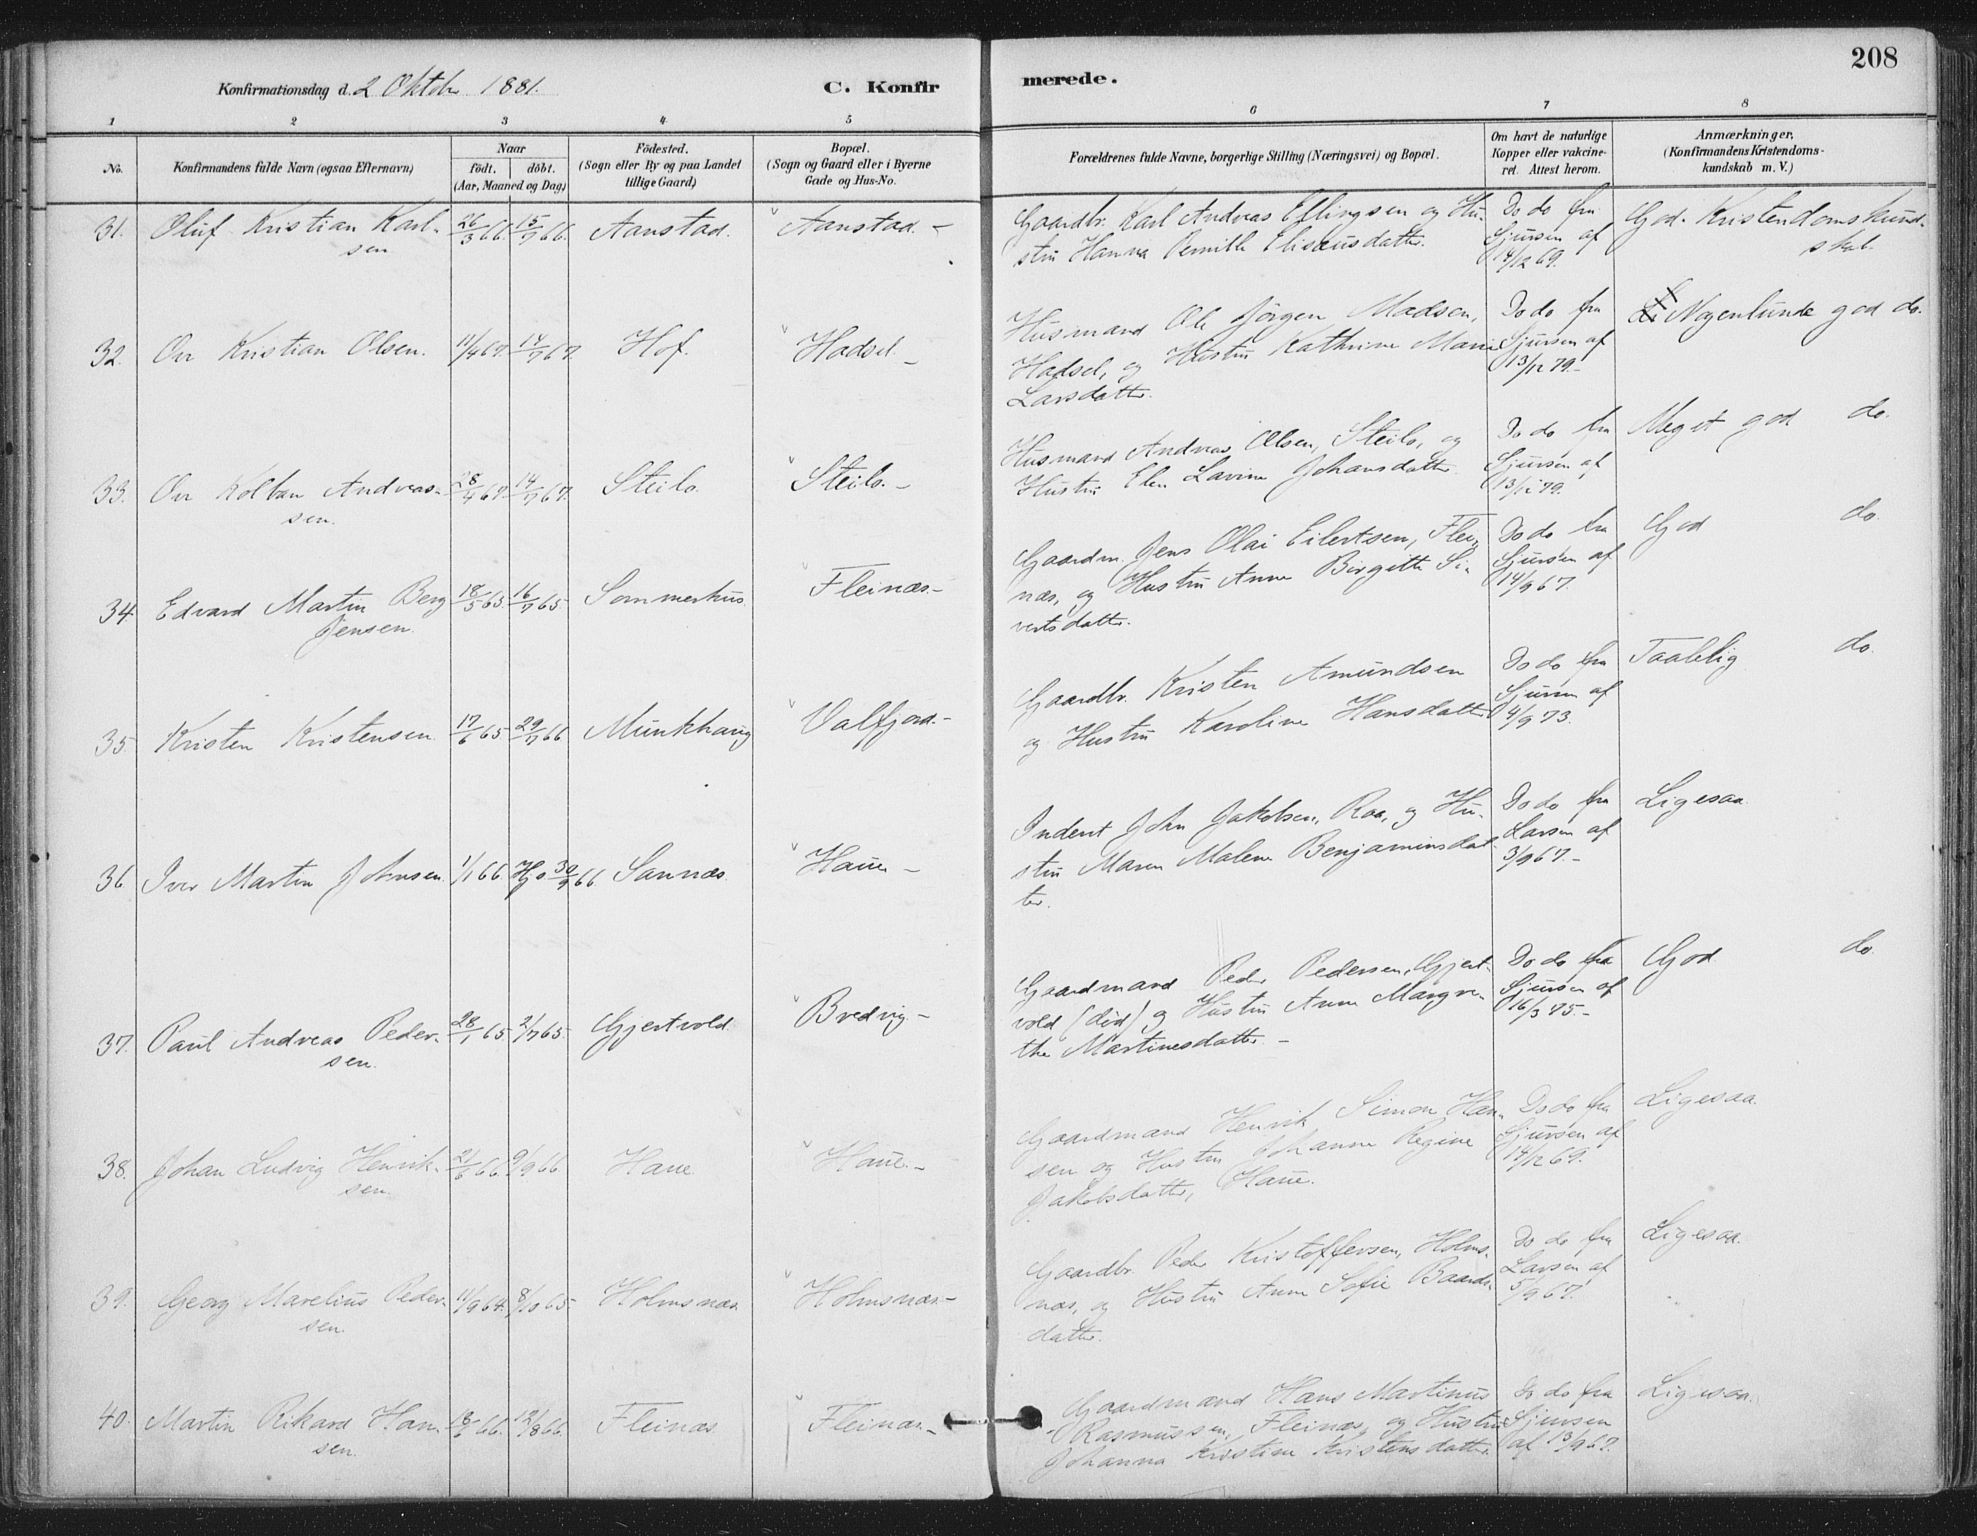 208
Konfirmationsdag d. 2 Oktober 1881.
C. Konfirmerede.
1 2 3 4 5 6 7 8
No.
Konfirmandens fulde Navn (ogsaa Efternavn)
Naar
födt. döbt.
(Aar, Maaned og Dag)
Födested.
(Sogn eller By og paa Landet
tillige Gaard)
Bopæl.
(Sogn og Gaard eller i Byerne
Gade og Hus-No.
Forældrenes fulde Navne, borgerlige Stilling (Næringsvei) og Bopæl.
Om havt de naturlige
Kopper eller vakcine-
ret. Attest herom.
Anmærkninger.
(Konfirmandens Kristendoms-
kundskab m. V.)
31. Oluf Kristian Karl-
sen
26/3 66. 15/7 66. Aanstad. Aanstad. -
Gaardbr. Karl Andreas Ellingsen og Hu-
stru Hanna Pernille Elisæusdatter.
Do do fra
Sjursen af
14/12 69.
God Kristendomskund-
skab.
32. Ove Kristian Olsen. 11/4 67. 14/7 67. Hof. Hadsel. -
Husmand Ole Jörgen Madsen,
Hadsel, og Hustru Kathrine Marie
Larsdatter.
Do do fra
Sjursen af
13/12 79. -
Nogenlunde god do.
33. Ove Kolban Andreas-
sen.
28/4 67. 14/7 67. Steilo. Steilo. -
Husmand Andreas Olsen, Steilo, og
Hustru Elen Lavine Johansdatter.
Do do fra
Sjursen af
13/12 79.
Meget god do.
34. Edvard Martin Berg
Jensen.
18/5 65. 16/7 65. Sommerhus. Fleinæs. -
Gaardm. Jens Olai Eilertsen, Flei-
næs, og Hustru Anne Birgitte Si-
vertsdatter.
Do do fra
Sjursen af
14/9 67.
God do.
35. Kristen Kristensen. 17/6 65 29/7 66 Munkhaug Valfjord. -
Gaardbr. Kristen Amundsen
og Hustru Karoline Hansdatter
Do do fra
Sjursen af
4/9 73.
Taalelig do.
36. Iver Martin Johnsen. 1/1 66. Hj. 30/9 66. Sannæs. Haue -
Inderst John Jakobsen, Raa, og Hu-
stru Maren Malene Benjaminsdat
ter.
Do do fra
Larsen af
3/9 67. -
Ligesaa.
37. Paul Andreas Peder-
sen.
28/1 65. 2/7 65. Gjertvold. Bredvig -
Gaardmand Peder Pedersen, Gjert-
vold (död) og Hustru Anne Margre-
the Martinesdatter. -
Do do fra
Sjursen af
16/3 75. -
God do.
38. Johan Ludvig Henrik-
sen.
21/6 66. 9/9 66. Haue Haue. -
Gaardmand Henrik Simon Han-
sen og Hustru Johanne Regine
Jakobsdatter, Haue.
Do do fra
Sjursen af
14/12 69.
Ligesaa.
39. Georg Marelius Peder-
sen.
11/9 64. 8/10 65. Holmsnæs. Holmsnæs. -
Gaardbr. Peder Kristoffersen, Holms-
næs, og Hustru Anne Sofie Baards-
datter.
Do do fra
Larsen af
5/9 67.
Ligesaa.
40. Martin Rikard Han-
sen.
18/6 66. 12/8 66. Fleinæs Fleinæs. -
Gaardmand Hans Martinus
Rasmussen, Fleinæs, og Hustru
Johanna Kristine Kristensdatter.
Do do fra
Sjursen
af 13/9 67.
Ligesaa.